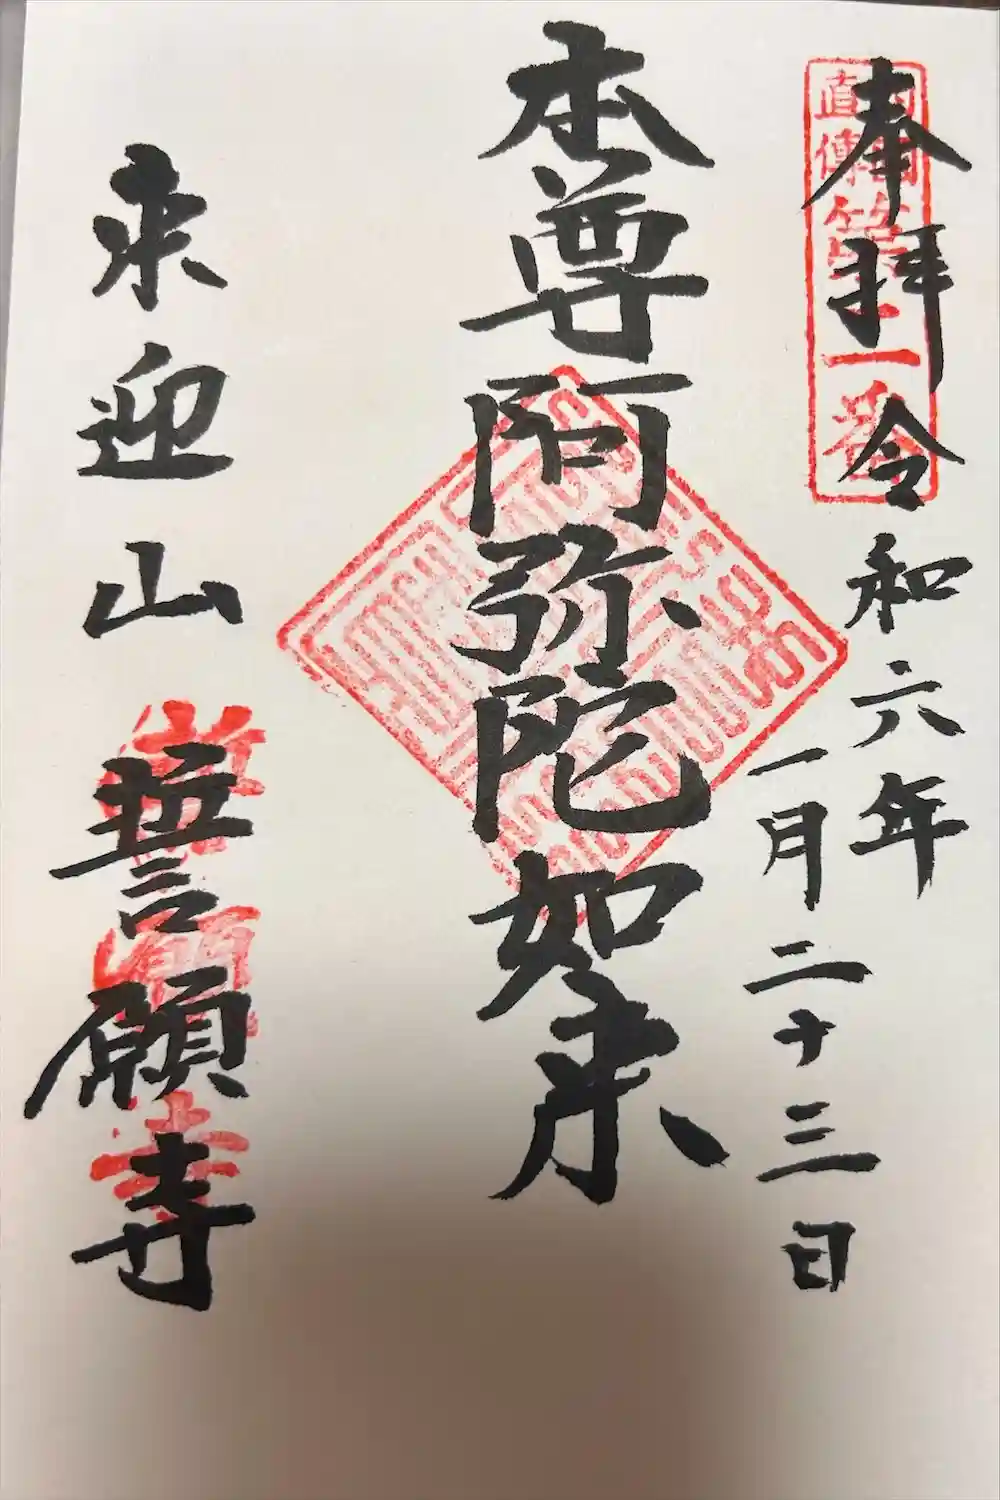 奉拝 令和六年
一月二十三日
本尊阿弥陀如来
来迎山 誓願寺
直傳